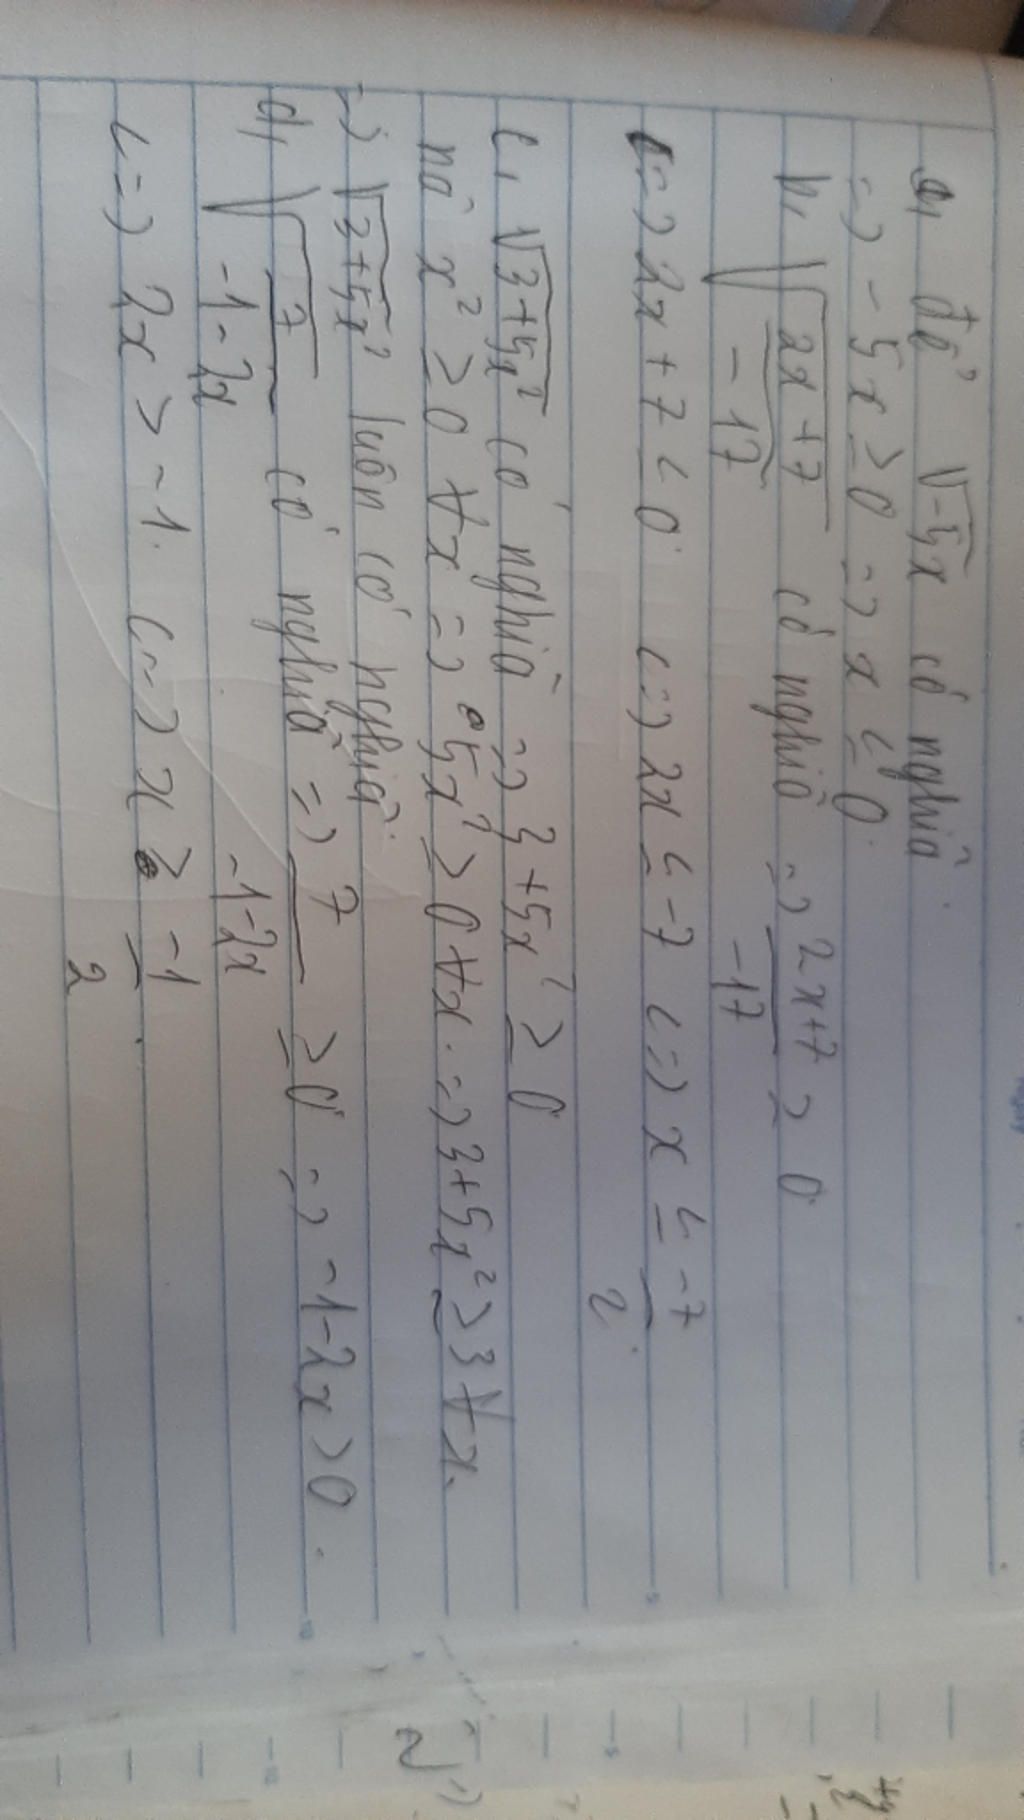 a, để √-5x có nghĩa.
=) -5x ≥ 0 =) x ≤ 0.
b, √(2x+7)/(-17) có nghĩa =) (2x+7)/(-17) ≥ 0.
(=) 2x + 7 ≤ 0. (=) 2x ≤ -7 (=) x ≤ -7/2.
c, √3+5x² có nghĩa =) 3+5x² ≥ 0
x² ≥ 0 ∀x =) 5x² ≥ 0 ∀x. =) 3+5x² ≥ 3 ∀x.
=) √3+5x² luôn có nghĩa.
d, √7/(-1-2x) có nghĩa =) 7/(-1-2x) ≥ 0. =) -1-2x > 0.
(=) 2x > -1. (=) x ≥ -1/2.